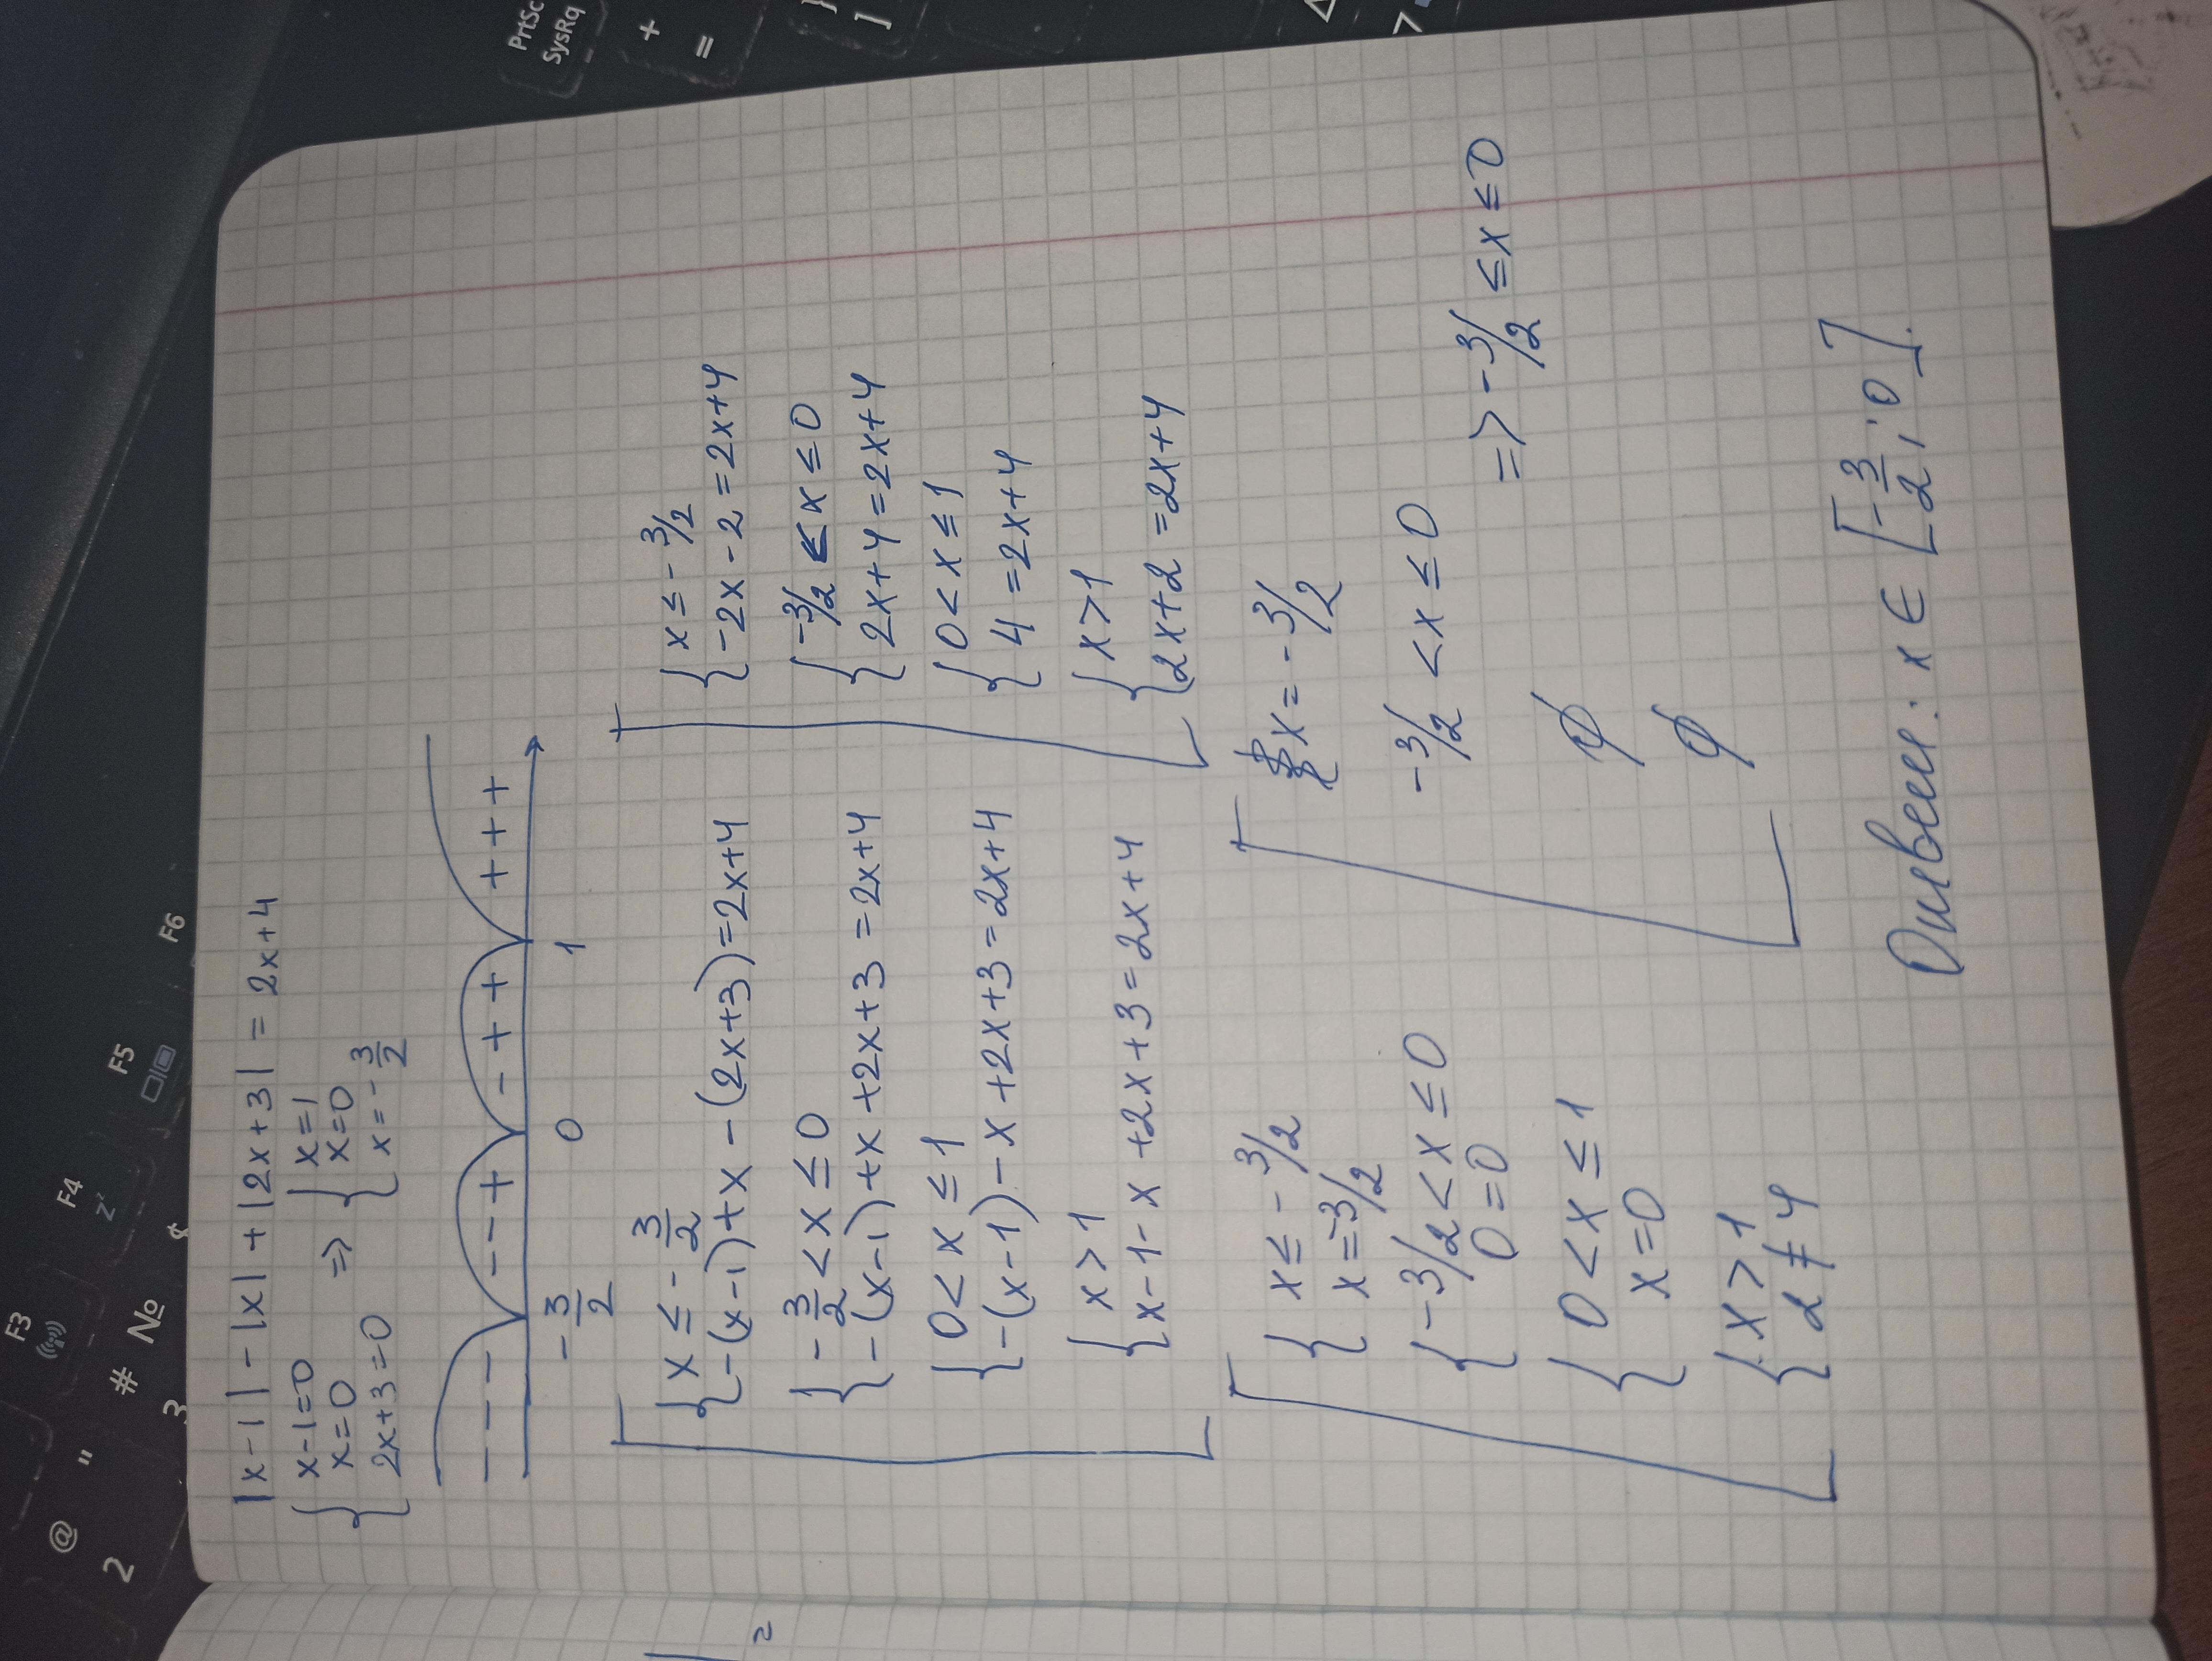 |x-1| - |x| + |2x+3| = 2x+4
{ x-1=0 => { x=1
x=0 x=0
2x+3=0 x=-3/2
- - - - - - + - + + + + +
-3/2 0 1
[ { x ≤ -3/2
-(x-1)+x-(2x+3)=2x+4
{ -3/2 < x ≤ 0
-(x-1)+x+2x+3=2x+4
{ 0 < x ≤ 1
-(x-1)-x+2x+3=2x+4
{ x > 1
x-1-x+2x+3=2x+4
[ { x ≤ -3/2
-2x-2=2x+4
{ -3/2 < x ≤ 0
2x+4=2x+4
{ 0 < x ≤ 1
4=2x+4
{ x > 1
2x+2=2x+4
[ { x ≤ -3/2
x=-3/2
{ -3/2 < x ≤ 0
0=0
{ 0 < x ≤ 1
x=0
{ x > 1
2≠4
[ x=-3/2
-3/2 < x ≤ 0 => -3/2 ≤ x ≤ 0
∅
∅
Ответ: x ∈ [-3/2; 0].
PrtSc
SysRq
+
=
}
]
F3
F4
F5
F6
zᶻ
@
2
"
#
№
3
2